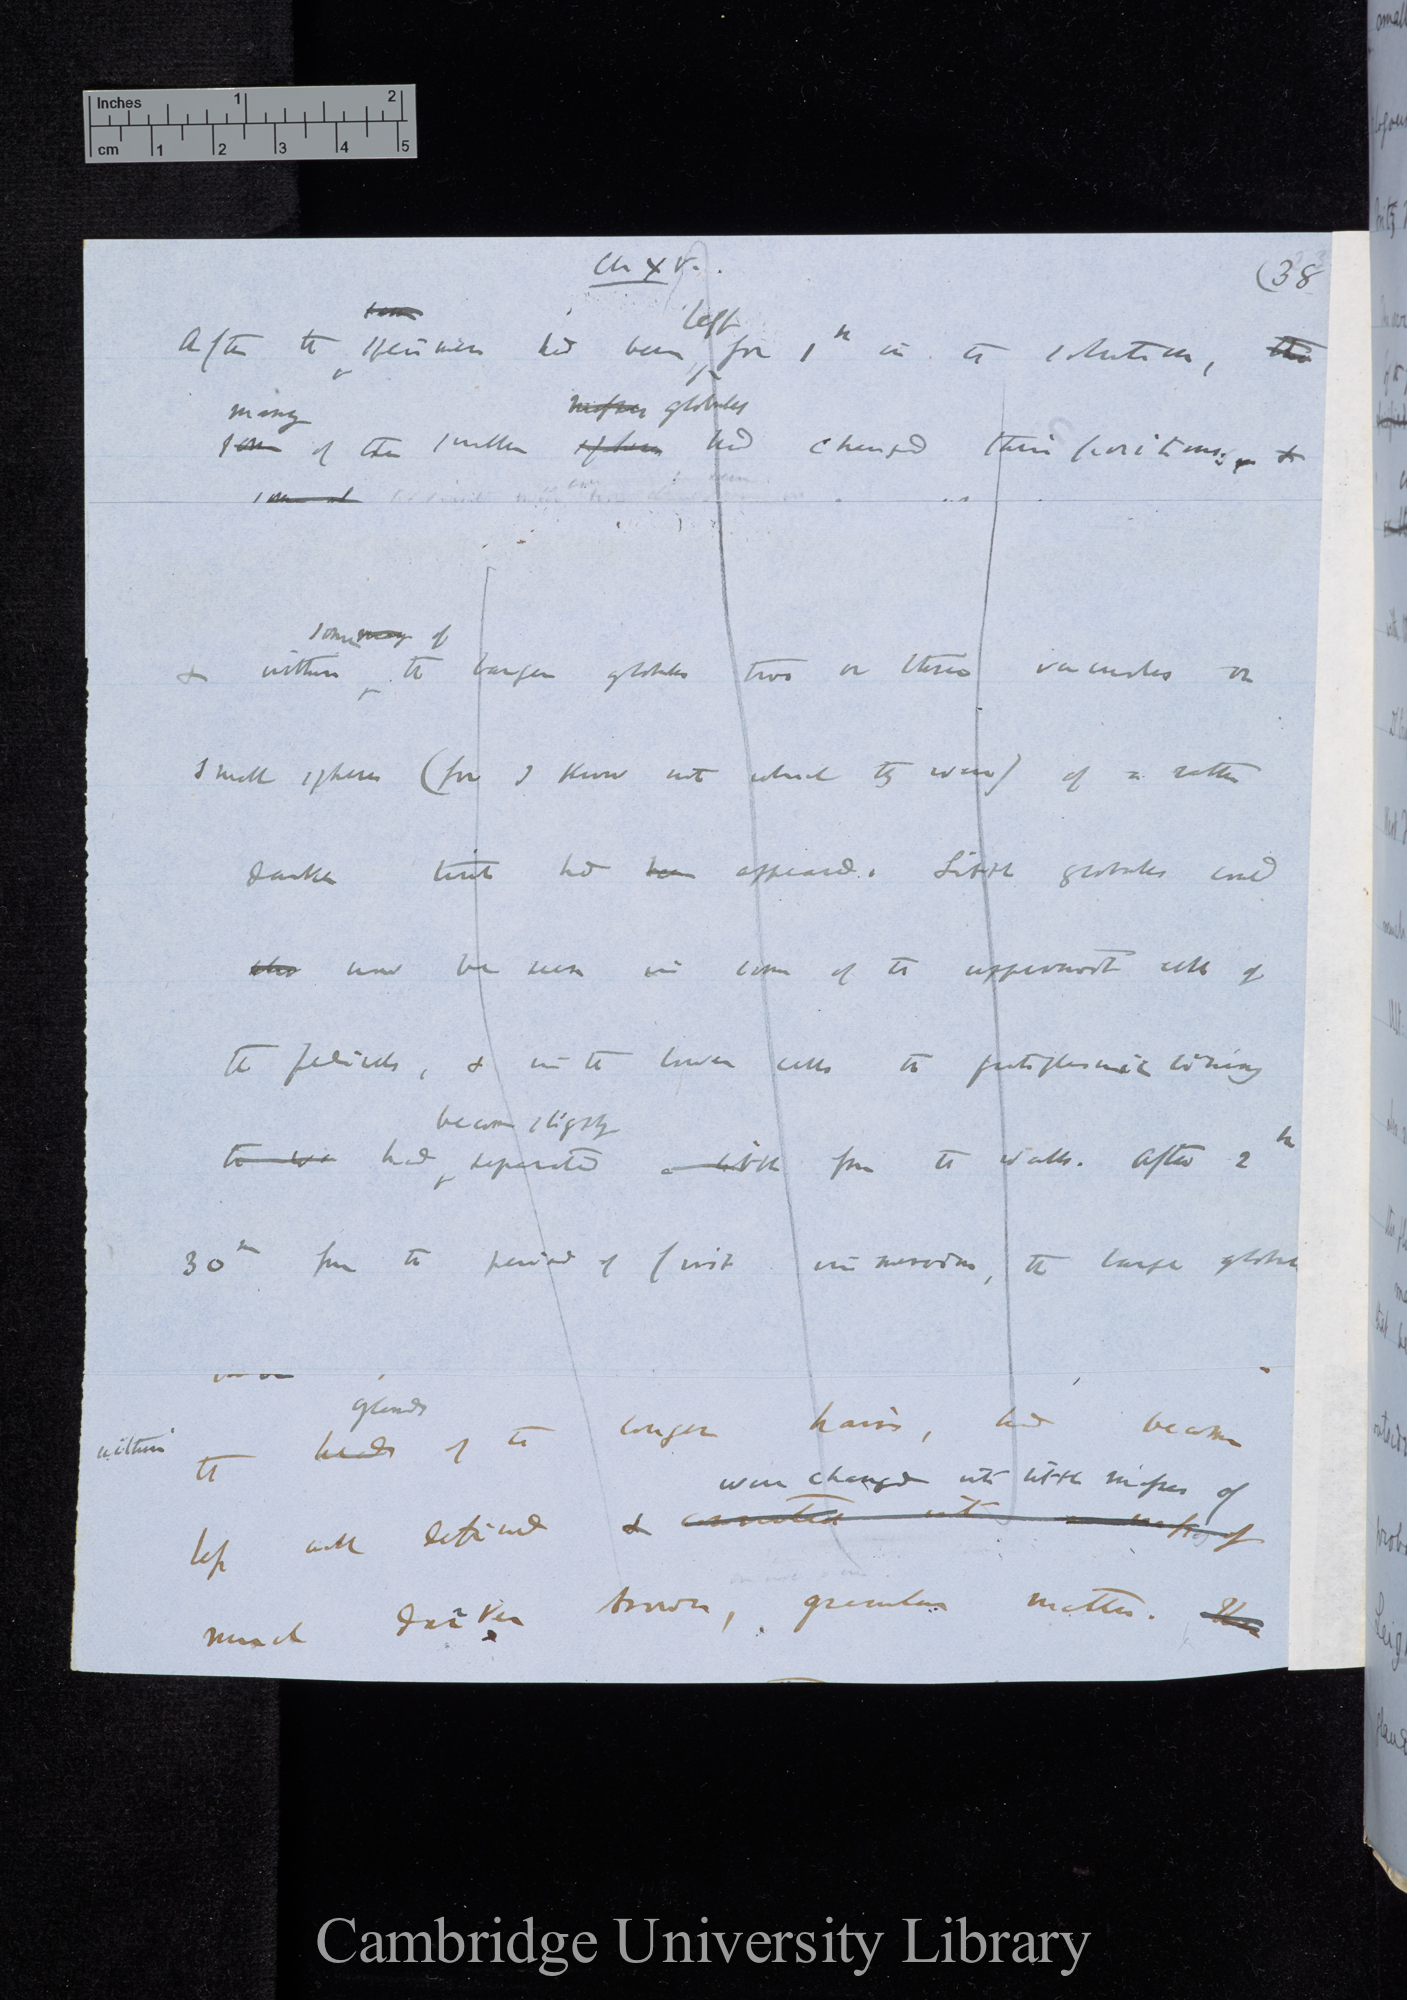 Inches 1 2
cm 1 2 3 4 5
Ch XV.
(38
some
left
After the specimen had been for 1h in the solution, the
many masses globules
some of the smaller spheres had changed their positions; &
some of
some many of
& within the larger globules two or three vacuoles or
small spheres (for I know not which they were) of a rather
darker tint had been appeared. Little globules could
also now be seen in some of the uppermost cells of
the pedicels, & in the lower cells the protoplasmic lining
become slightly
had separated a little from the walls. After 2h
30m from the period of first immersion, the large globules
glands
within the heads of the longer hairs, had become
were changed into little masses of
less well defined & converted into a mass of
much darker brown, granular matter. The
Cambridge University Library